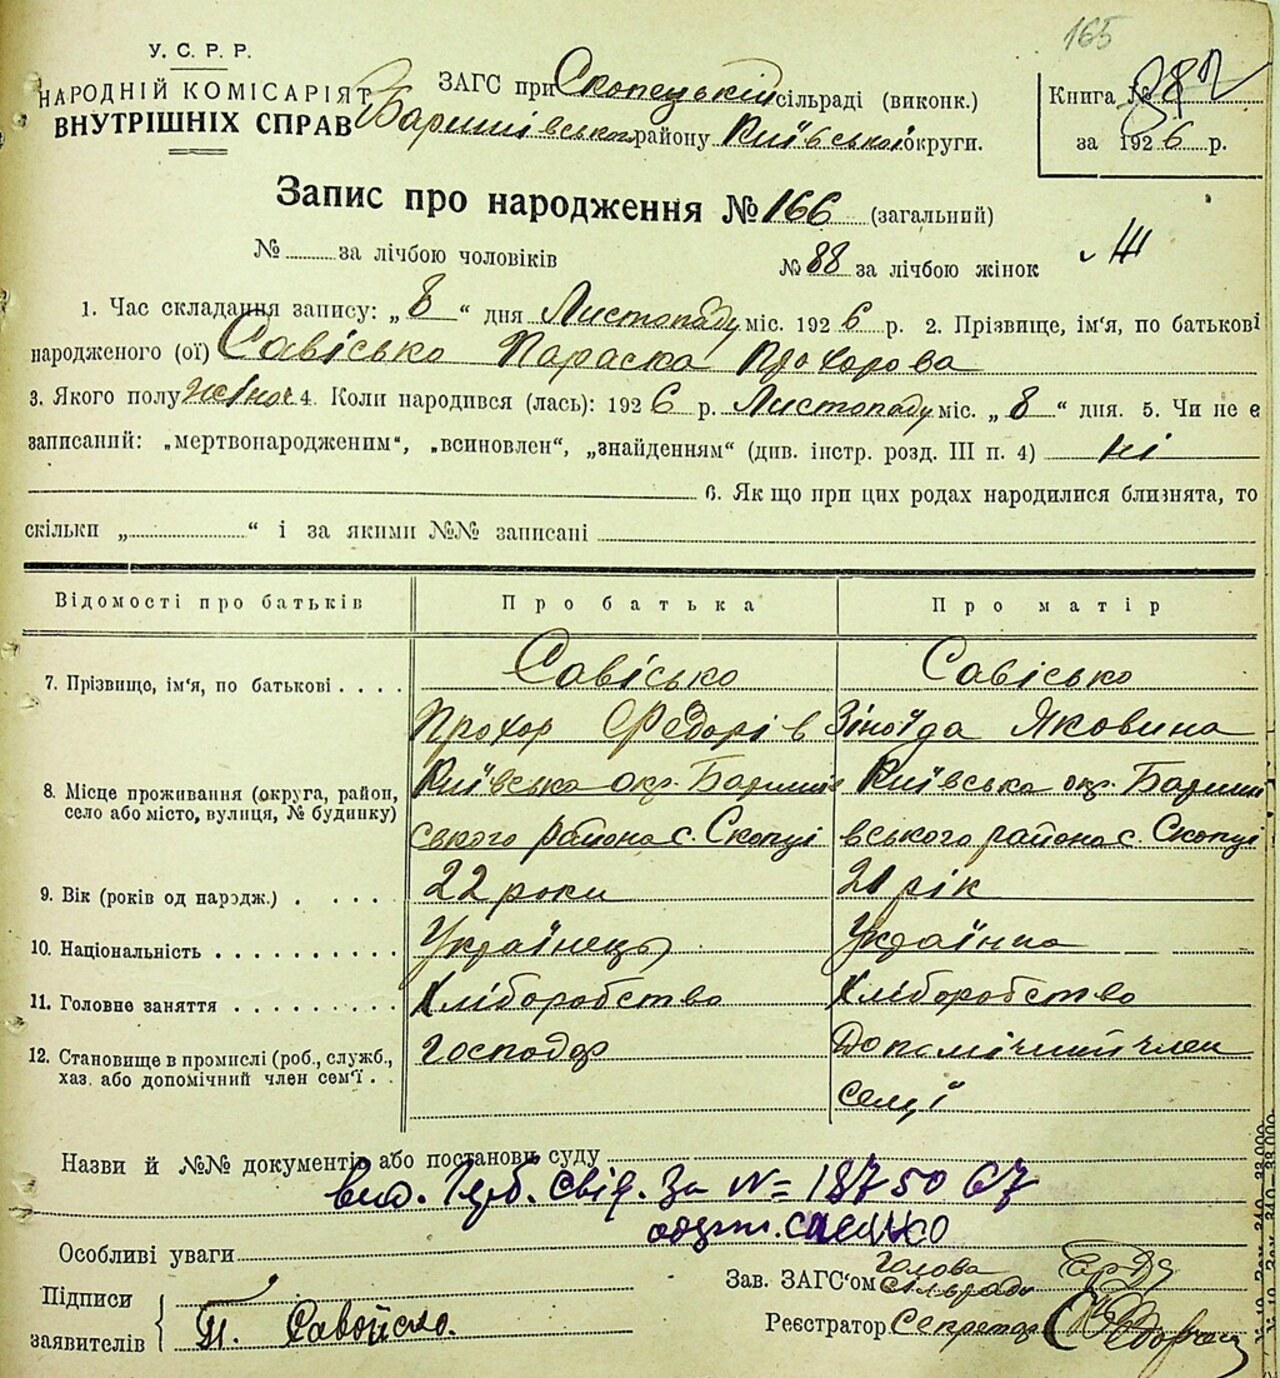 165
У. С. Р. Р.
НАРОДНІЙ КОМІСАРІЯТ
ВНУТРІШНІХ СПРАВ
ЗАГС при Скопецькій сільраді (виконк.)
Баришівського району Київської округи.
Книга №
за 1926 р.
Запис про народження № 166 (загальний)
№ ........ за лічбою чоловіків
№ 88 за лічбою жінок
1. Час складання запису: „ 8 “ дня Листопаду міс. 1926 р. 2. Прізвище, ім‘я, по батькові
народженого (ої) Савісько Параска Прохорова
3. Якого полу жіноч 4. Коли народився (лась): 1926 р. Листопаду міс. „ 8 “ дня. 5. Чи не є
записаний: „мертвонародженим“, „всиновлен“, „знайденням“ (див. інстр. розд. III п. 4) ні
6. Як що при цих родах народилися близнята, то
скільки „............“ і за якими №№ записані
Відомості про батьків Про батька Про матір
7. Прізвище, ім‘я, по батькові . . . . Савісько Савісько
Прохор Федорів Зіноїда Яковина
8. Місце проживання (округа, район, Київська окр. Баришів Київська окр. Бариші
село або місто, вулиця, № будинку) ського района с. Скопці вського района с. Скопці
9. Вік (років од народж.) . . . . . 22 роки 21 рік
10. Національність . . . . . . . . . . Українець Українка
11. Головне заняття . . . . . . . . . Хліборобство Хліборобство
12. Становище в промислі (роб., служб., Господар Допомічний член
хаз. або допомічний член сем‘ї . . семї
Назви й №№ документів або постанови суду
вид. свід. за № 1875067
Особливі уваги
Підписи
заявителів
П. Савойско.
Зав. ЗАГС‘ом Голова
сільради
Реєстратор Секретар